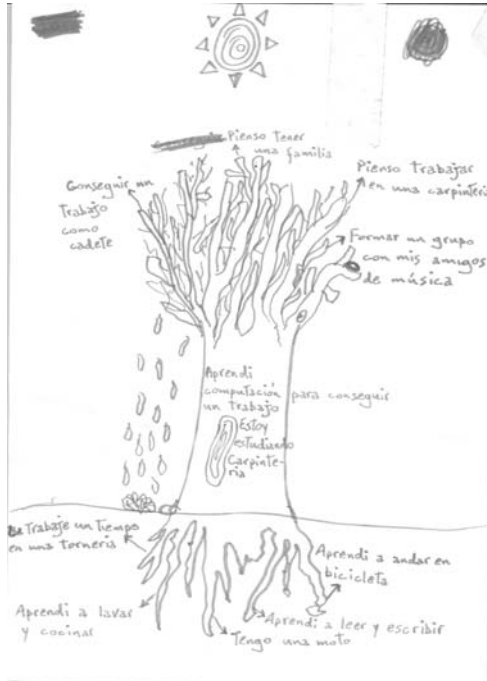 Pienso tener
una familia
Conseguir un
Trabajo
como
cadete
Pienso trabajar
en una carpinteria
Formar un grupo
con mis amigos
de música
Aprendi
computación para conseguir
un trabajo
Estoy
estudiando
Carpinte-
ria
Trabaje un Tiempo
en una torneria
Aprendi a andar en
bicicleta
Aprendi a lavar
y cocinar
Aprendi a leer y escribir
Tengo una moto